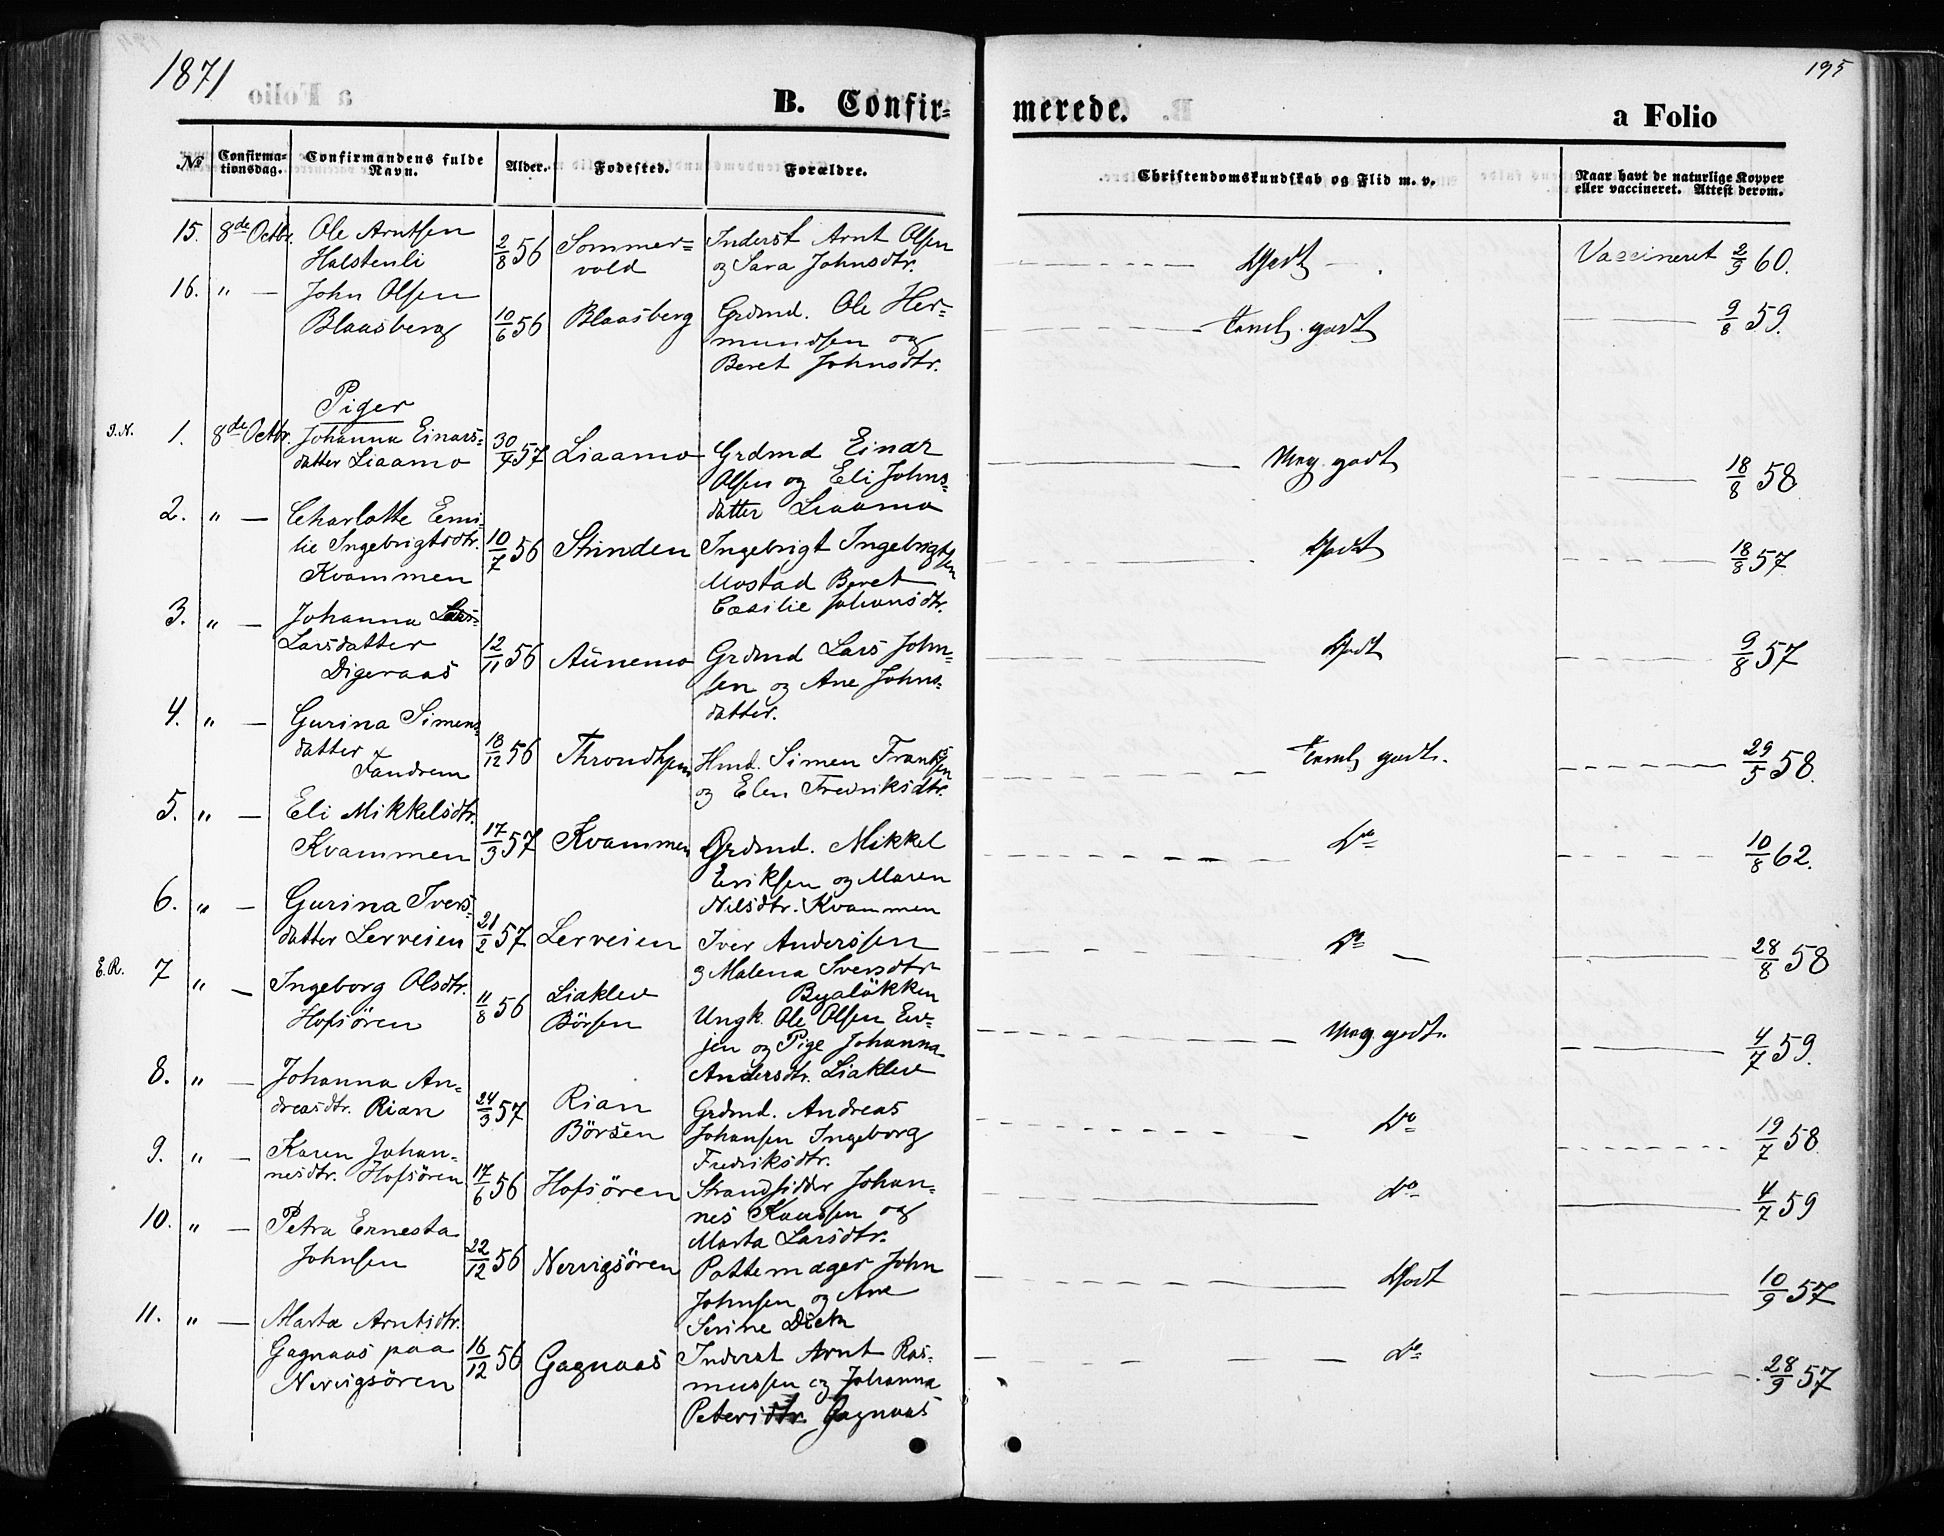 1871
195
B. Confir-
merede.
a Folio
№
Confirma-
tionsdag.
Confirmandens fulde
Navn.
Alder.
Fødested.
Forældre.
Christendomskundskab og Flid m. v.
Naar havt de naturlige Kopper
eller vaccineret. Attest derom.
15. 8de Octbr. Ole Arntsen
Halstenli
2/8 56
Sommer=
vold
Inderst Arnt Olsen
og Sara Johnsdtr.
Godt
Vaccineret 2/9 60.
16. " — John Olsen
Blaasberg
10/6 56
Blaasberg
Grdmd. Ole Her=
mundsen og
Beret Johnsdtr.
Teml. godt
9/8 59.
Piger
I.N. 1. 8de Octbr. Johanna Einars=
datter Liaamo
30/4 57
Liaamo
Grdmd Einar
Olsen og Eli Johns=
datter Liaamo
Meg. godt
18/8 58
2. " — Charlotte Emi=
lie Ingebrigtsdtr.
Kvammen
10/7 56
Strinden
Ingebrigt Ingebrigtsen
Mostad Beret
Cecilie Johansdtr.
Godt
18/8 57
3. " — Johanna Lars=
Larsdatter
Digeraas
12/11 56
Aunemo
Grdmd Lars John=
sen og Ane Johns=
datter.
Godt
9/8 57
4. " — Gurina Simens=
datter
Fandrem
18/12 56
Throndhjem
Hmd. Simen Frantsen
og Elen Fredriksdtr.
Teml. godt.
29/5 58.
5. " — Eli Mikkelsdtr.
Kvammen
17/3 57
Kvammen
Grdmd. Mikkel
Eriksen og Maren
Nilsdtr. Kvammen
Do
10/8 62.
6. " — Gurina Ivers=
datter Lerveien
21/2 57
Lerveien
Iver Anderssen
& Malena Sversdtr
Byaløkken
Do
28/8 58
E.R. 7 " — Ingeborg Olsdtr.
Hofsøren
11/8 56
Liaklev
Børsen
Ungk. Ole Olsen Ev=
jen og Pige Johanna
Andersdtr. Liaklev
Meg. godt.
4/7 59.
8. " — Johanna An=
dreasdtr. Rian
24/3 57
Rian
Børsen
Grdmd. Andreas
Johansen Ingeborg
Fredriksdtr.
Do
19/7 58
9. " — Karen Johan=
nesdtr. Hofsøren
17/6 56
Hofsøren
Strandsidder Johan=
nes Knussen og
Marta Larsdtr.
Do
4/7 59
10. " — Petra Ernesta
Johnsen
22/12 56
Nervigsøren
Pottemager John
Johnsen og Ane
Serine
Godt
10/9 57
11. " — Marta Arntsdtr.
Gagnaas paa
Nervigsören
16/12 56
Gagnaas
Inderst Arnt Ras=
mussen og Johanna
Petersdtr. Gagnaas
Do
28/9 57